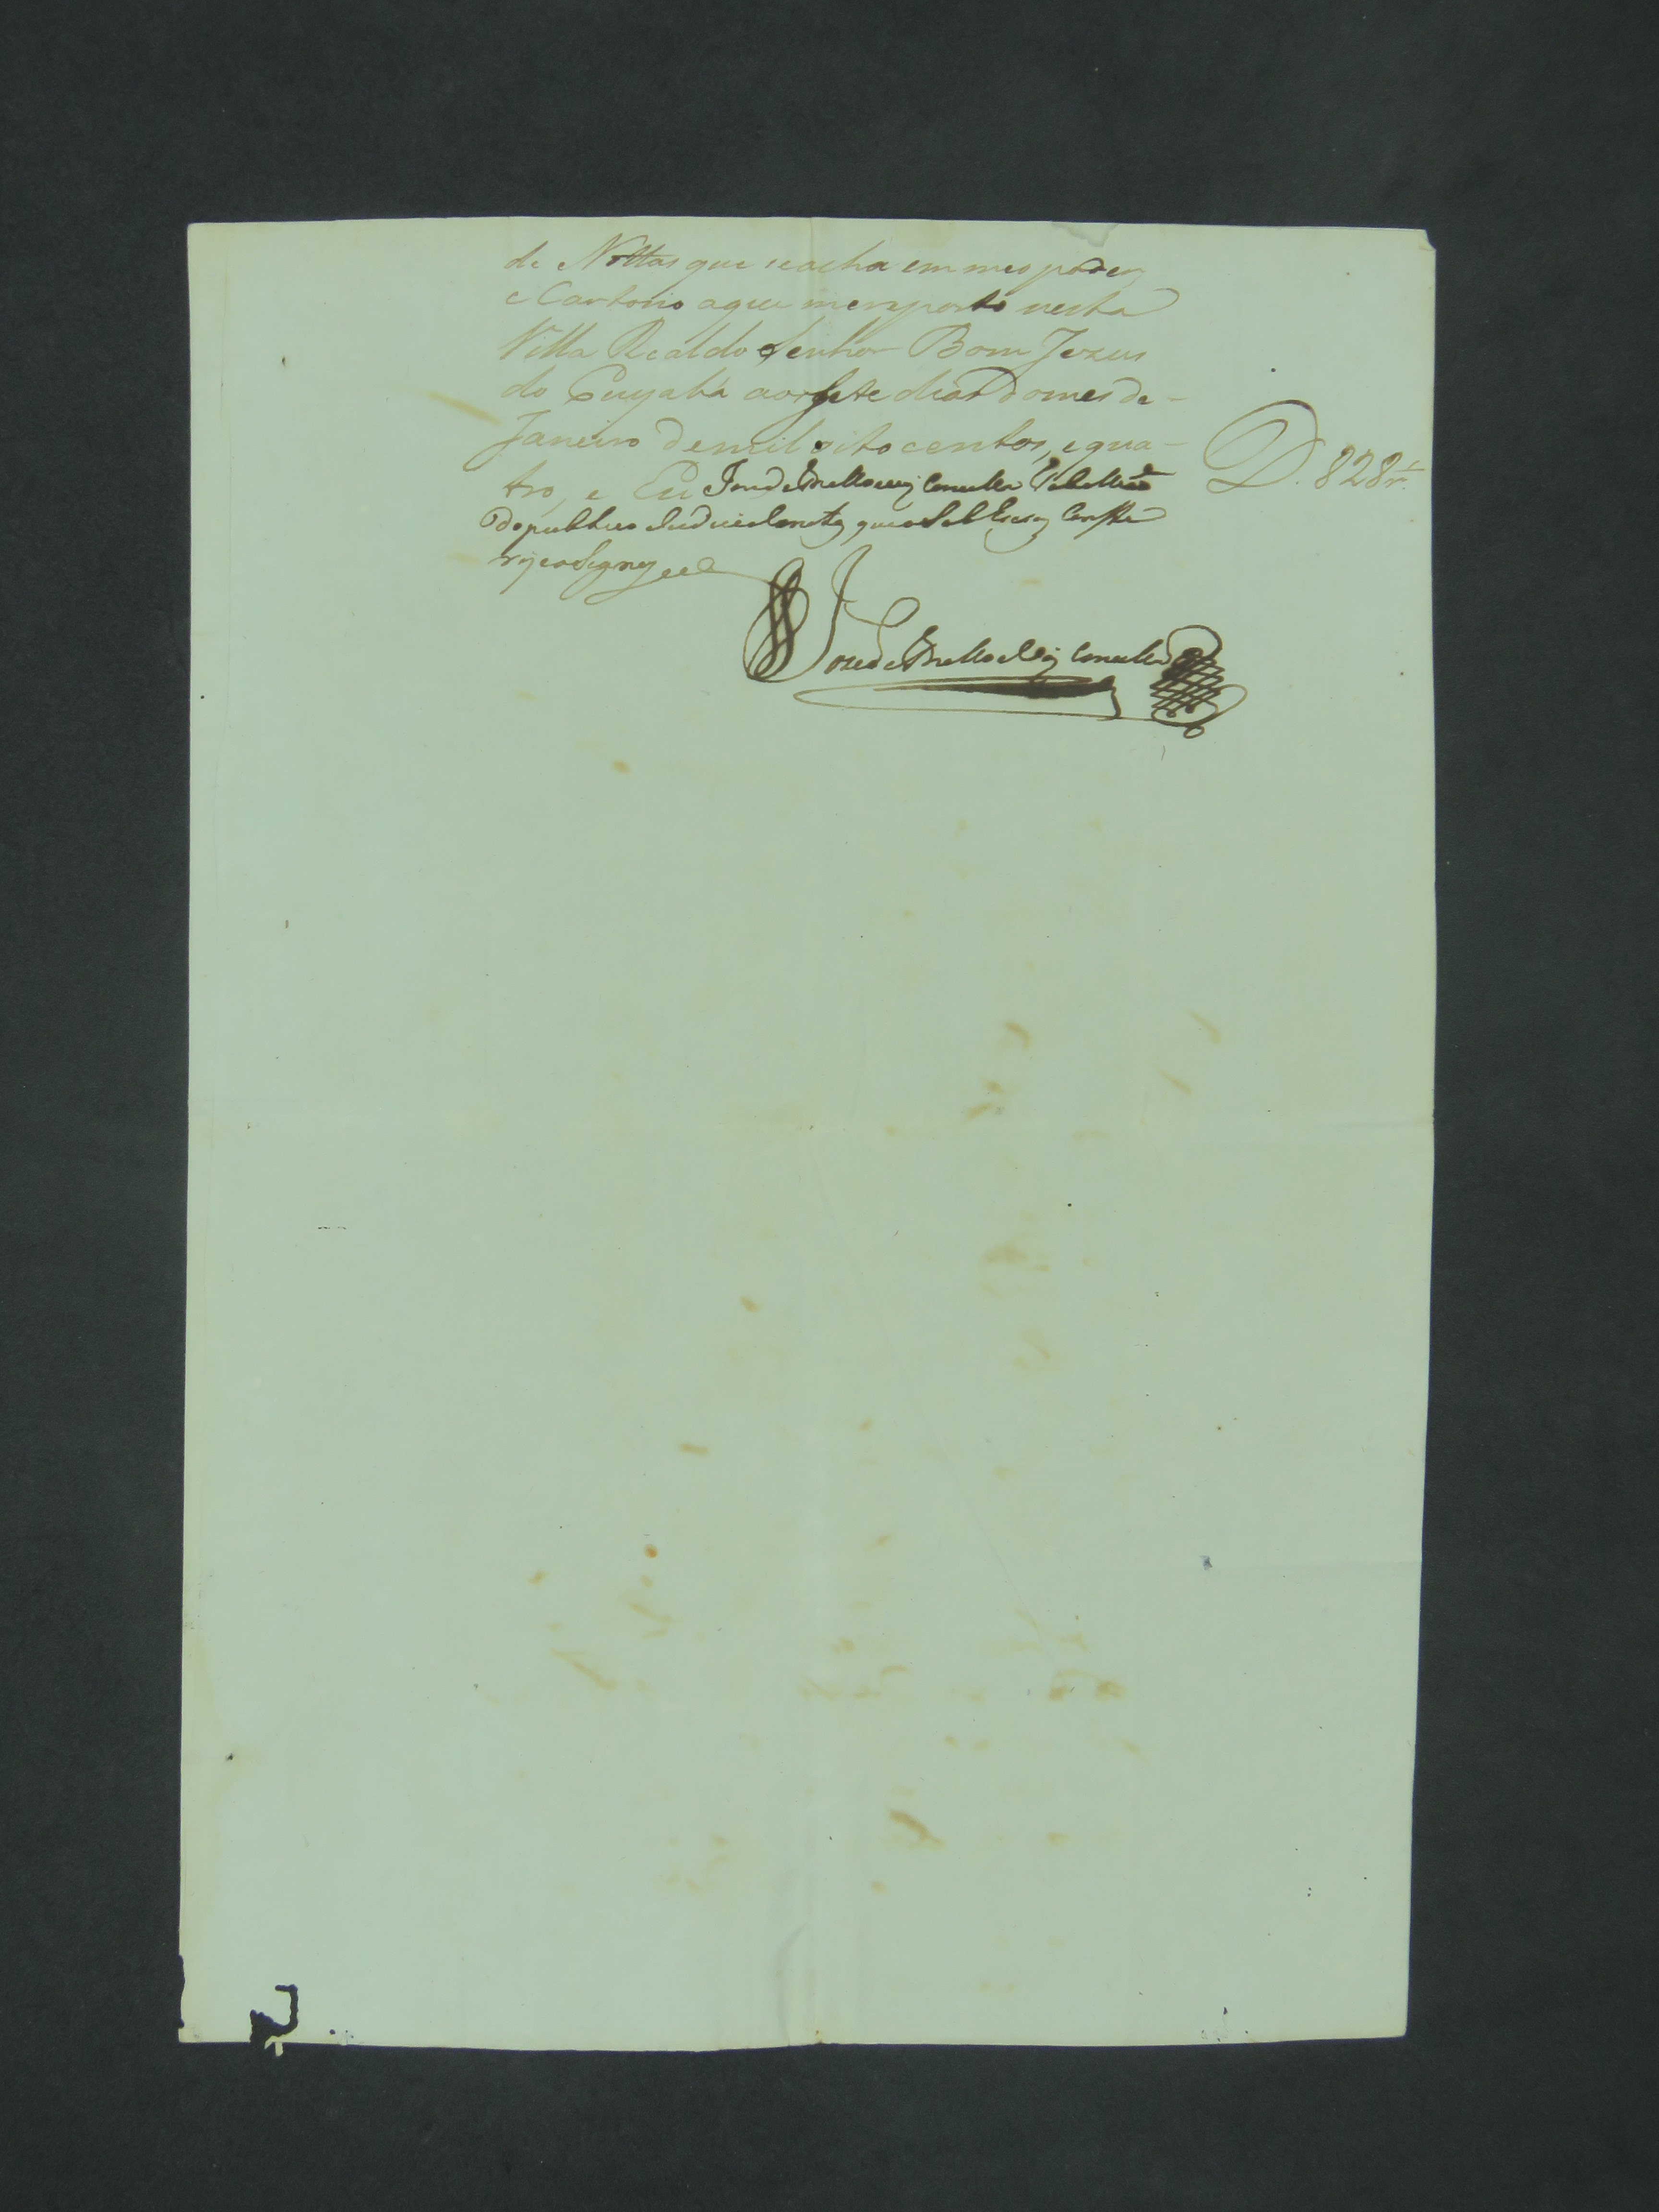 de Nottas que seacha em meo poder,
e Cartorio aque mereporto nesta
Villa Real do Senhor Bom Jezus
do Cuyabá aos sete dias do mes de -
Janeiro demil oito centos, equa -
tro, e Eu Joze de Mello
de publico Judicial enotas que o Sob Escrevy Confe
ry eoSigney
D. 828 r.s
Joze de Mello